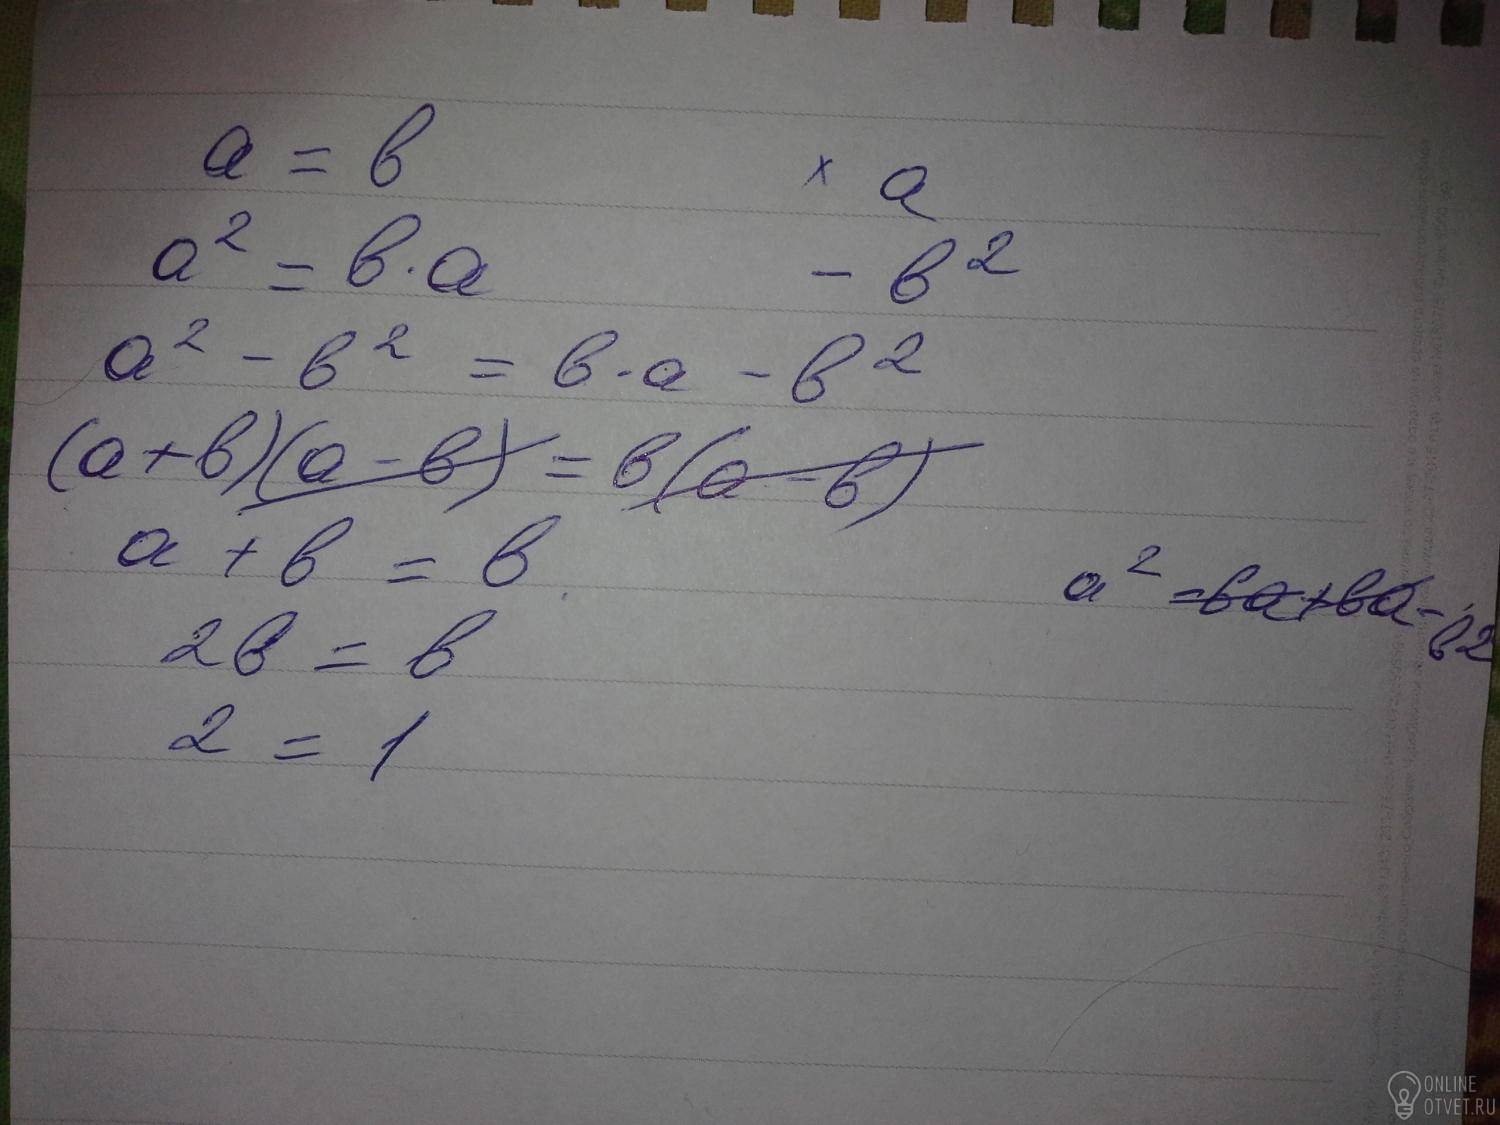 a = b
× a
a² = b·a
- b²
a² - b² = b·a - b²
(a+b)(a-b) = b(a-b)
a + b = b
a² = ba+ba-b2
2b = b
2 = 1
ONLINE
OTVET.RU